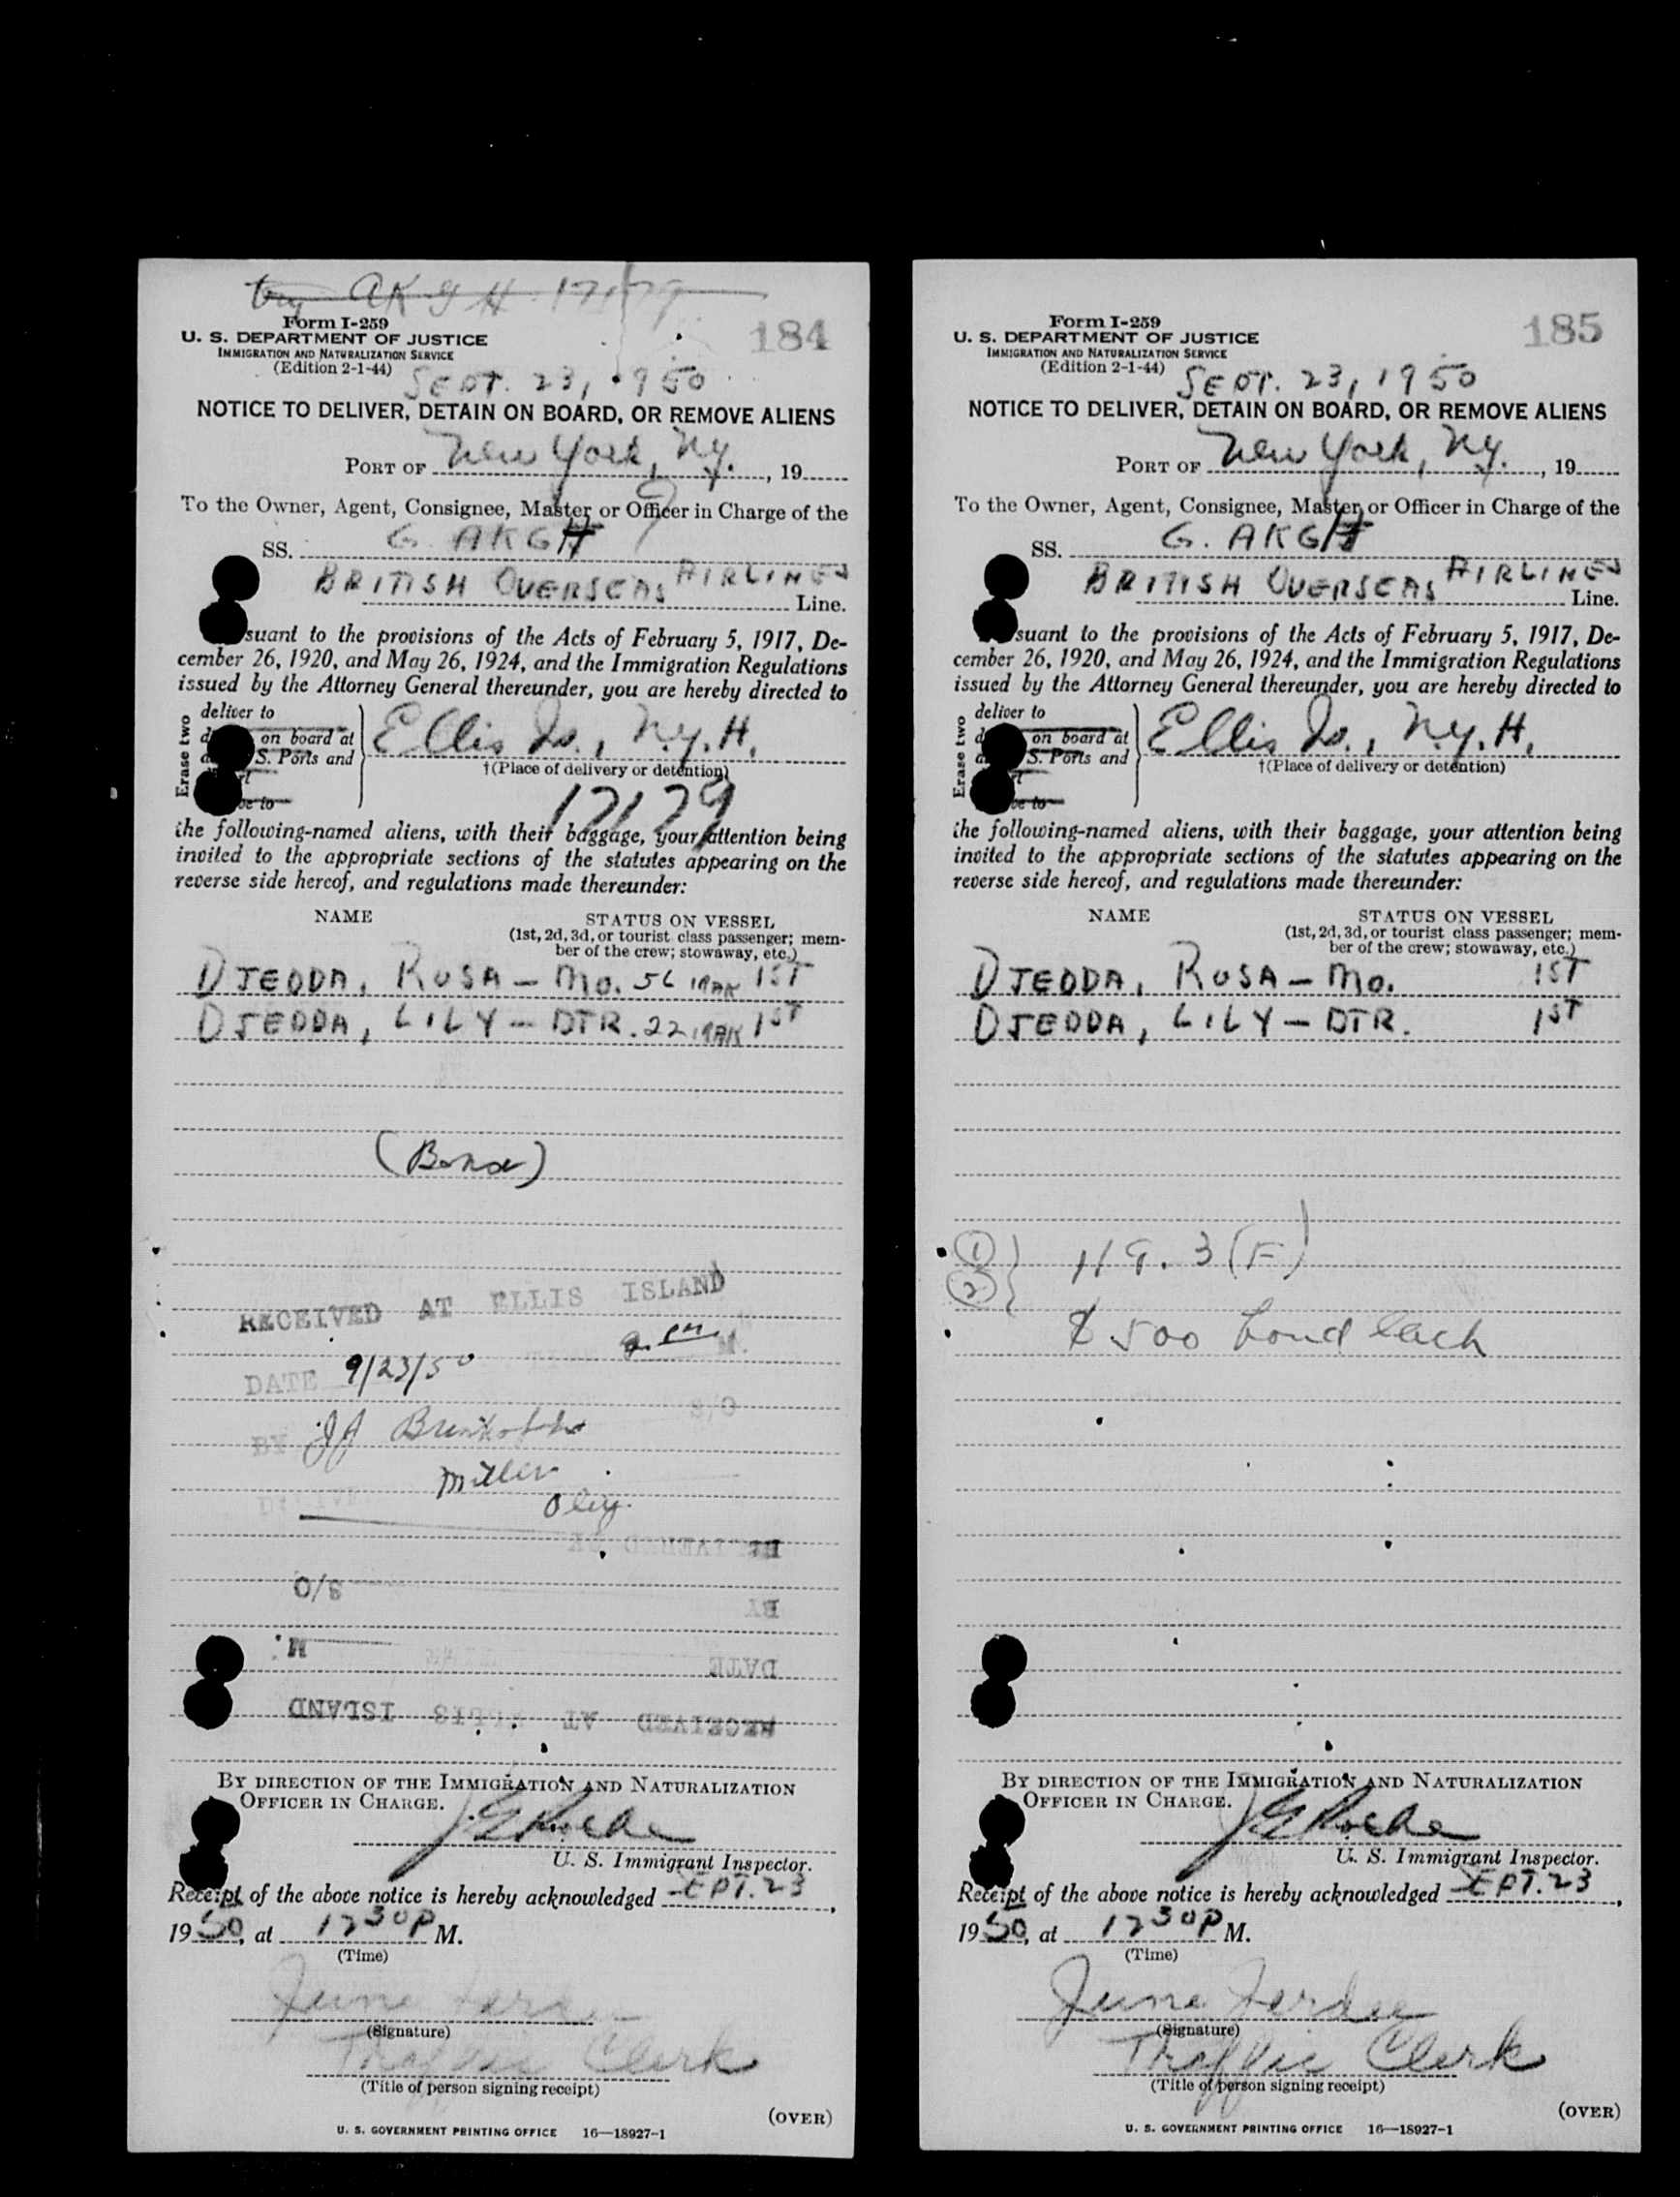 AKGH 17179
Form I-259
184
U. S. DEPARTMENT OF JUSTICE
IMMIGRATION AND NATURALIZATION SERVICE
(Edition 2-1-44)
SEPT. 23, 1950
NOTICE TO DELIVER, DETAIN ON BOARD, OR REMOVE ALIENS
PORT OF New York, N.Y., 19
To the Owner, Agent, Consignee, Master or Officer in Charge of the
SS. G. AKGH
BRITISH OVERSEAS AIRLINES Line.
suant to the provisions of the Acts of February 5, 1917, De-
cember 26, 1920, and May 26, 1924, and the Immigration Regulations
issued by the Attorney General thereunder, you are hereby directed to
Erase two
deliver to
on board at
S. Ports and
Ellis Is., N.Y.H.
†(Place of delivery or detention)
17179
the following-named aliens, with their baggage, your attention being
invited to the appropriate sections of the statutes appearing on the
reverse side hereof, and regulations made thereunder:
NAME STATUS ON VESSEL
(1st, 2d, 3d, or tourist class passenger; mem-
ber of the crew; stowaway, etc.)
DJEDDA, ROSA – MO. 56 1ST
DJEDDA, LILY – DTR. 22 1ST
(Bond)
RECEIVED AT ELLIS ISLAND
M.
DATE 9/23/50
S/O
BY JJ
Miller
RECEIVED AT ELLIS ISLAND
DATE
M.
BY
S/O
BY DIRECTION OF THE IMMIGRATION AND NATURALIZATION
OFFICER IN CHARGE.
J G Roche
U. S. Immigrant Inspector.
Receipt of the above notice is hereby acknowledged SEPT. 23,
1950, at 1230P M.
(Time)
June
(Signature)
Traffic Clerk
(Title of person signing receipt)
(OVER)
U. S. GOVERNMENT PRINTING OFFICE 16—18927-1
Form I-259
185
U. S. DEPARTMENT OF JUSTICE
IMMIGRATION AND NATURALIZATION SERVICE
(Edition 2-1-44)
SEPT. 23, 1950
NOTICE TO DELIVER, DETAIN ON BOARD, OR REMOVE ALIENS
PORT OF New York, N.Y., 19
To the Owner, Agent, Consignee, Master or Officer in Charge of the
SS. G. AKGH
BRITISH OVERSEAS AIRLINES Line.
suant to the provisions of the Acts of February 5, 1917, De-
cember 26, 1920, and May 26, 1924, and the Immigration Regulations
issued by the Attorney General thereunder, you are hereby directed to
Erase two
deliver to
on board at
S. Ports and
Ellis Is., N.Y.H.
†(Place of delivery or detention)
the following-named aliens, with their baggage, your attention being
invited to the appropriate sections of the statutes appearing on the
reverse side hereof, and regulations made thereunder:
NAME STATUS ON VESSEL
(1st, 2d, 3d, or tourist class passenger; mem-
ber of the crew; stowaway, etc.)
DJEDDA, ROSA – MO. 1ST
DJEDDA, LILY – DTR. 1ST
① ② } 119.3(F)
$500 bond each
BY DIRECTION OF THE IMMIGRATION AND NATURALIZATION
OFFICER IN CHARGE.
J G Roche
U. S. Immigrant Inspector.
Receipt of the above notice is hereby acknowledged SEPT. 23,
1950, at 1230P M.
(Time)
June
(Signature)
Traffic Clerk
(Title of person signing receipt)
(OVER)
U. S. GOVERNMENT PRINTING OFFICE 16—18927-1